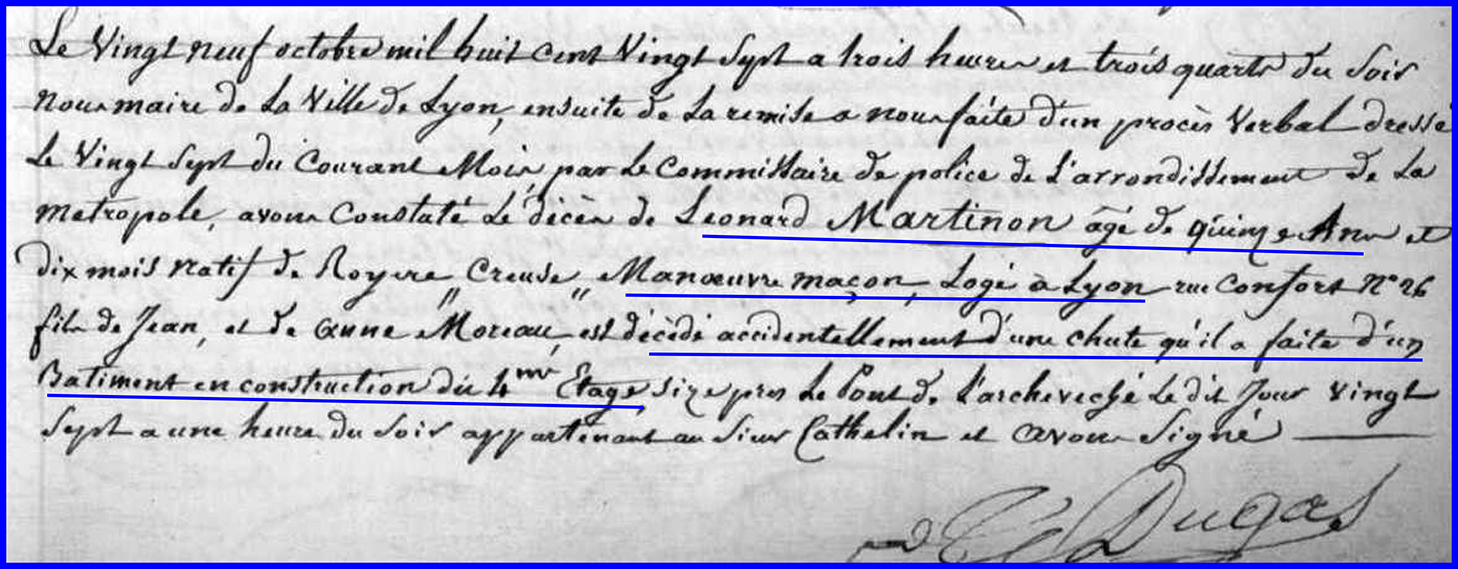 Le Vingt neuf octobre mil huit cent Vingt Sept a trois heures et trois quarts du Soir
Nous maire de La Ville de Lyon, ensuite de La remise a nous faite d'un procès Verbal dressé
Le Vingt Sept du Courant Mois par Le Commissaire de police de L'arrondissement de La
Metropole, avons Constaté Le décès de Leonard Martinon âgé de quinze Ans et
dix mois natif de Royere "Creuse" Manœuvre maçon, Logé à Lyon rue Confort N° 26
fils de Jean, et de anne Moreau, est décédé accidentellement d'une chute qu'il a faite d'un
Batiment en construction du 4me Etage, Size pres Le Pont de L'archeveché Le dit Jour Vingt
Sept a une heure du Soir appartenant au Sieur Cathelin et avons Signé
Dugas